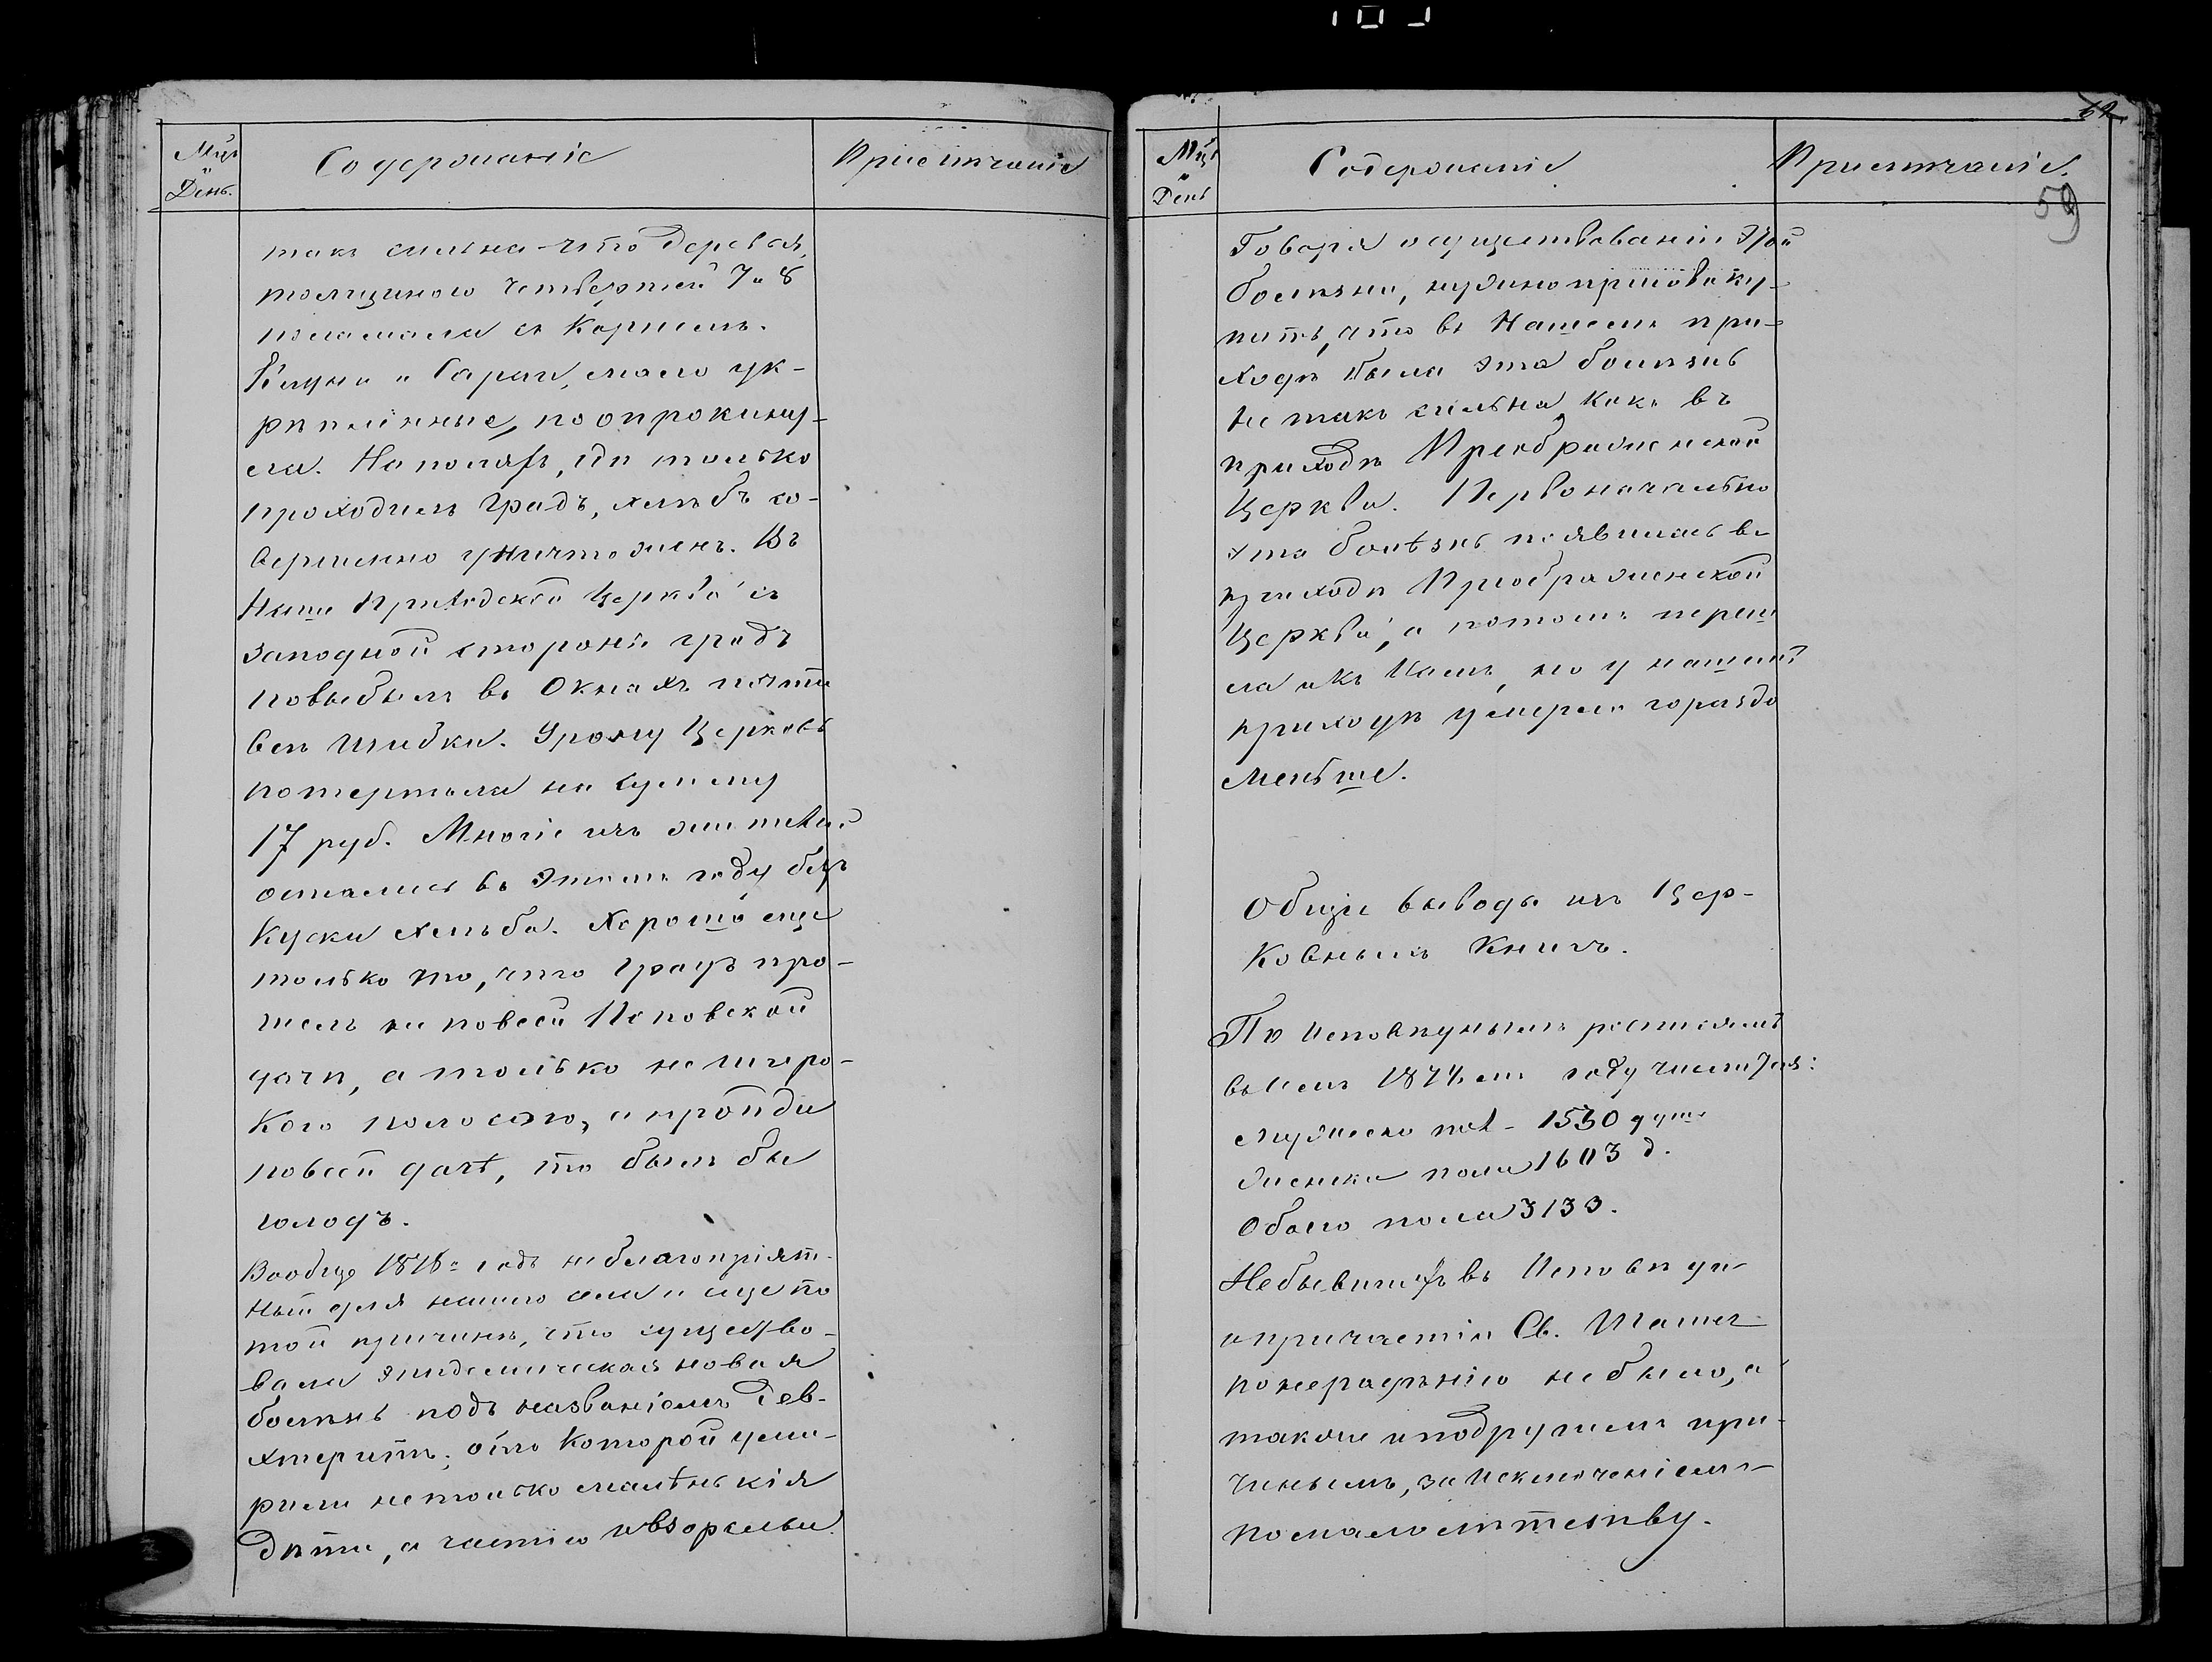 Мцъ
и
День.
Содержаніе
Примѣчаніе
такъ сильна что деревья,
толщиною четвертей 7 и 8
поламала съ корнемъ.
Клуни и Сараи, мало ук-
рѣпленные, поопрокину-
ла. На поляхъ, гдѣ только
проходилъ градъ, хлѣбъ со-
вершенно уничтоженъ. Въ
Нашей Приходской Церкви съ
западной стороны градъ
повыбилъ въ Окнахъ почти
всѣ шибки. Урону Церковь
потерпѣла на сумму
17 руб. Многіе изъ жителей
остались въ этомъ году безъ
куска хлѣба. Хорошо еще
только то, что градъ про-
шелъ не по всей Поповской
дачѣ, а только не широ-
кою полосою, а пройди
по всей дачѣ, то былъ бы
голодъ.
Вообще 1876й годъ неблагопріят-
ный для нашего села и еще по
той причинѣ, что существо-
вала эпидемическая новая
болѣзнь подъ названіемъ Деф-
хтеритъ; отъ которой уми-
рали не только маленькія
дѣти, а частію и взорслыи.
Мцъ
и
День
Содержаніе
Примѣчаніе.
59
Говоря о существованіи этой
болѣзни, нужно присовоку-
пить, что въ Нашемъ при-
ходѣ была эта болѣзнь
не такъ сильна, какъ въ
приходѣ Преображенской
Церкви. Первоначально
эта болѣзнь появилась въ
приходѣ Преображенской
Церкви, а потомъ переш
ла и къ Намъ, но у нашемъ
приходѣ умерло гораздо
меньше.
Общіе выводы изъ Цер-
ковныхъ Книгъ.
По Исповѣднымъ росписямъ
въ семъ году числится:
мужеска пола - 1530 душъ
женска пола 1603 д.
Обоего пола 3133.
Небывшихъ въ Исповѣди
и причастіи Св. Таинъ
по нерадѣнію не было, а
также и по другимъ при-
чинымъ, за исключеніемъ
по малолѣтству.